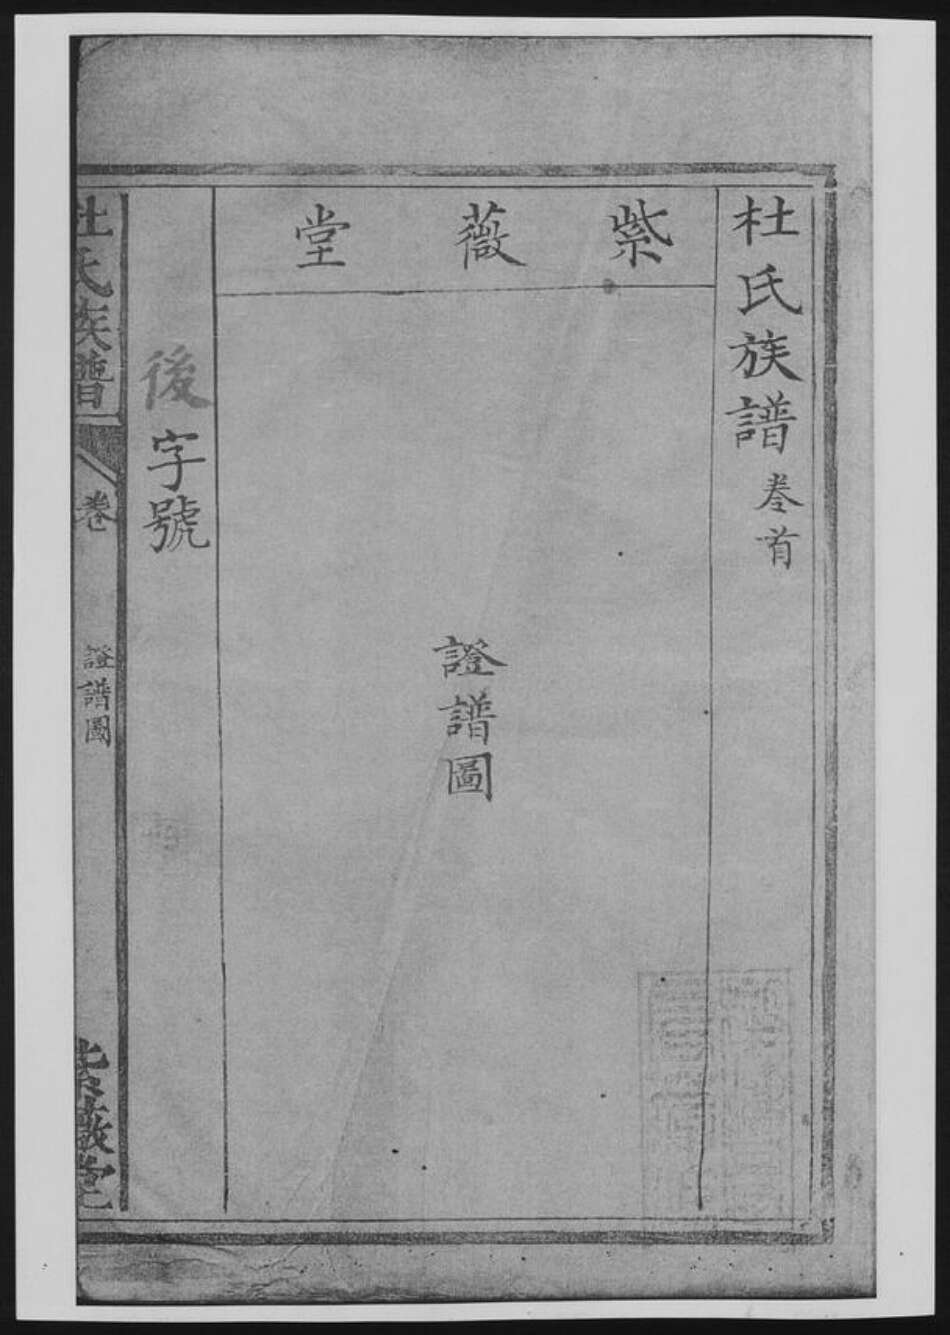 杜氏族譜卷首
紫薇堂
證譜圖
後字號
杜氏族譜
卷
證譜圖
紫薇堂